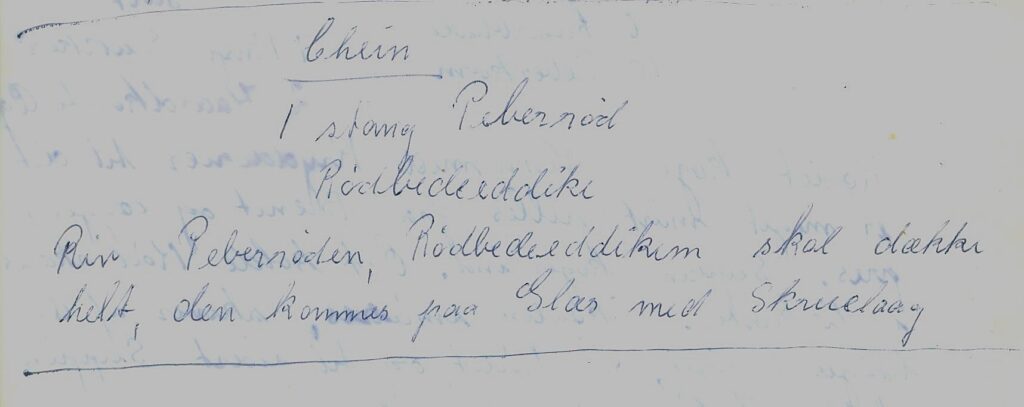 Chein
1 stang Peberrod
Rødbedeeddike
Riv Peberroden, Rødbedeeddiken skal dække
helt, den kommes paa Glas med Skruelaag